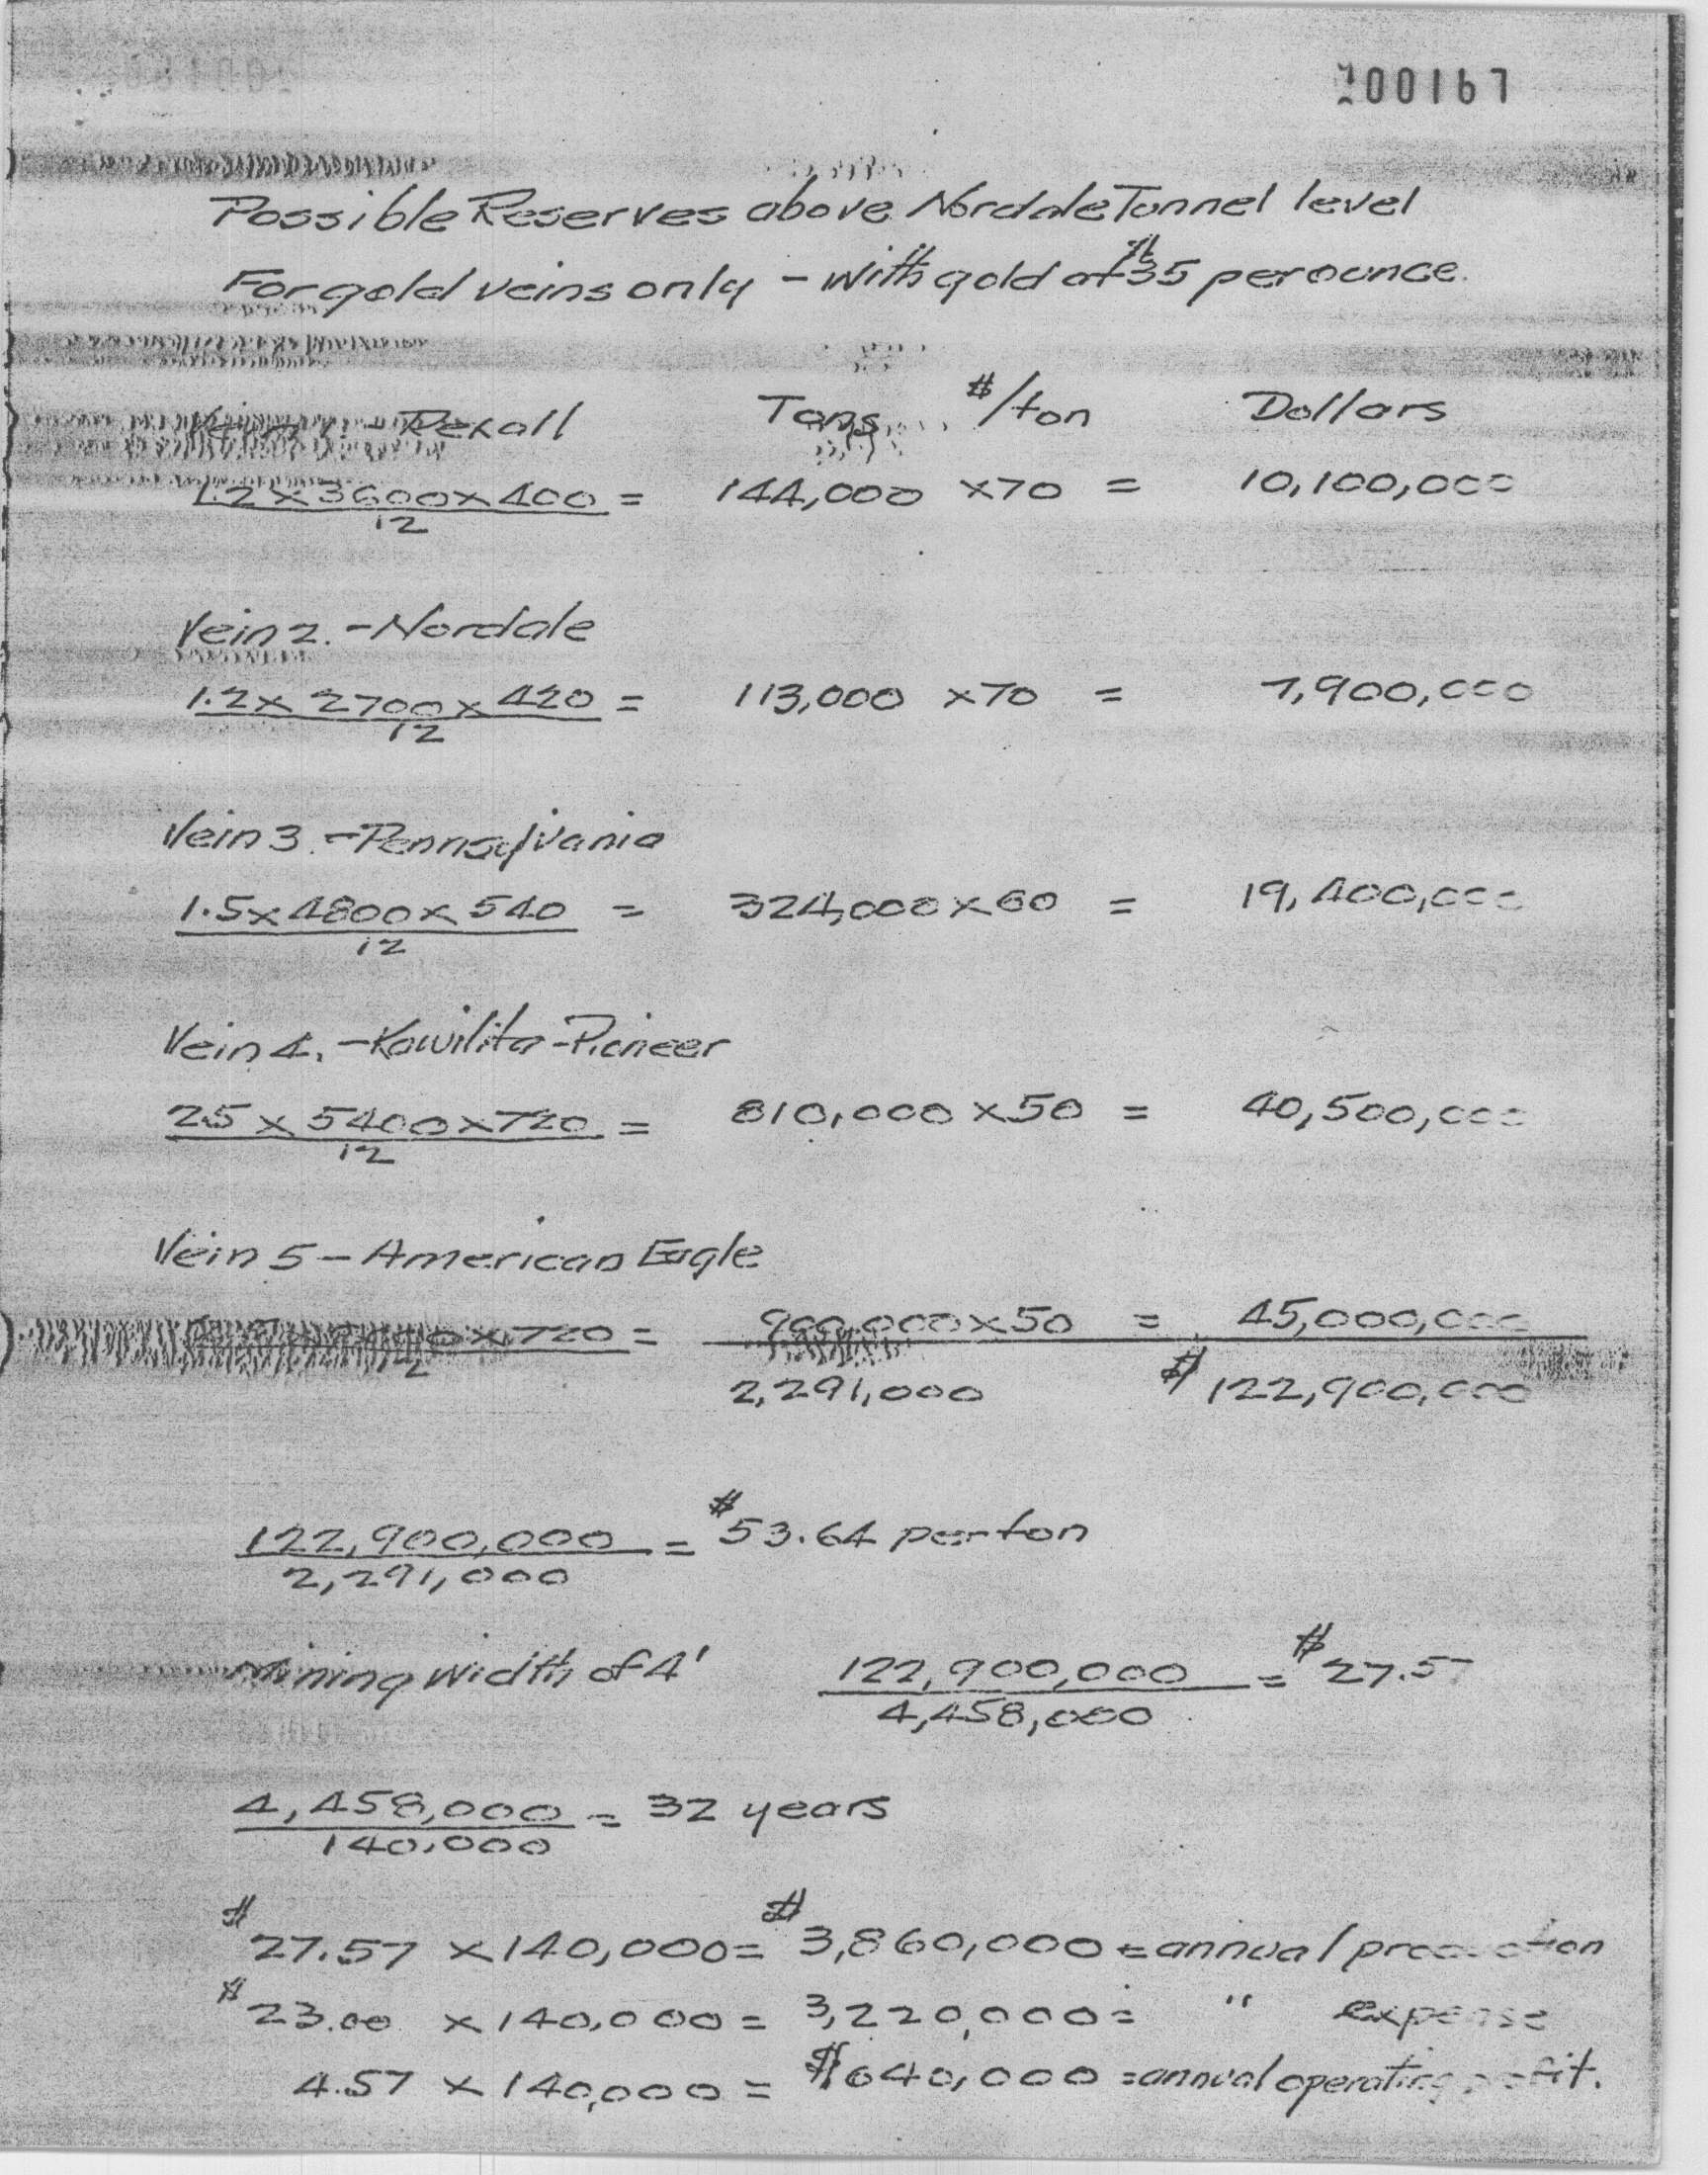 200167
Possible Reserves above Nordale Tunnel level
For gold veins only - With gold at $35 per ounce.
Vein 1. - Rexall Tons $/ton Dollars
1.2 x 3600 x 400 = 144,000 x 70 = 10,100,000
12
Vein 2. - Nordale
1.2 x 2700 x 420 = 113,000 x 70 = 7,900,000
12
Vein 3. - Pennsylvania
1.5 x 4800 x 540 = 324,000 x 60 = 19,400,000
12
Vein 4. - Kowilita - Pioneer
2.5 x 5400 x 720 = 810,000 x 50 = 40,500,000
12
Vein 5 - American Eagle
x 720 = 900,000 x 50 = 45,000,000
12
2,291,000 $122,900,000
122,900,000 = $53.64 per ton
2,291,000
Mining Width of 4' 122,900,000 = $27.57
4,458,000
4,458,000 = 32 years
140,000
$27.57 x 140,000 = $3,860,000 = annual production
$23.00 x 140,000 = 3,220,000 = " expense
4.57 x 140,000 = $640,000 = annual operating profit.